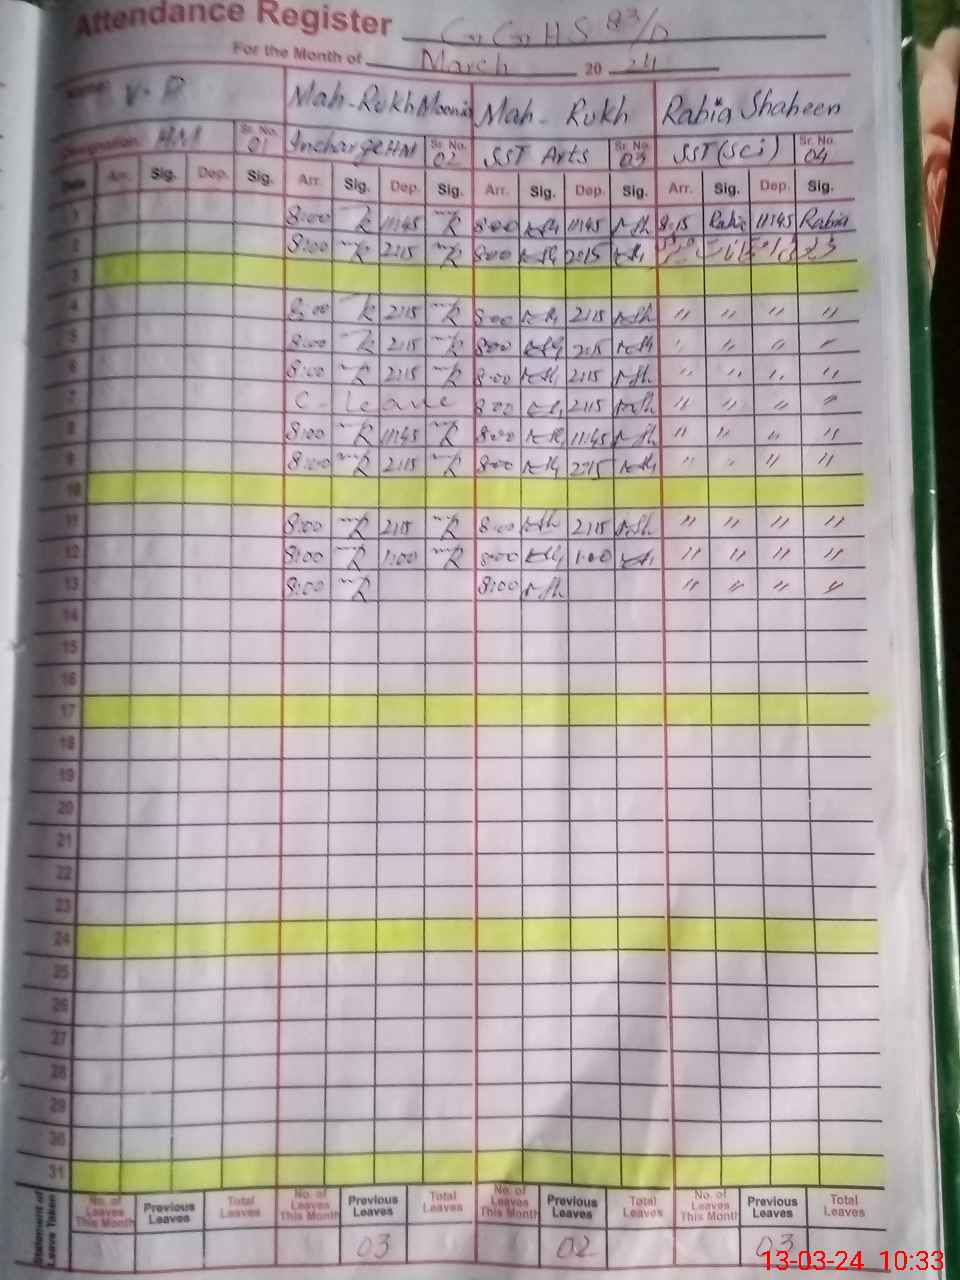 Attendance Register G. G. H S 83/D
For the Month of March 20 24
Name: V. P Mah-Rukh Moonis Mah-Rukh Rabia Shaheen
Designation: HM Sr. No. 01 Incharge HM Sr. No. 02 SST Arts Sr. No. 03 SST (Sci) Sr. No. 04
Date Arr. Sig. Dep. Sig. Arr. Sig. Dep. Sig. Arr. Sig. Dep. Sig. Arr. Sig. Dep. Sig.
1 8:00 11:45 8:00 11:45 8:15 Rabia 11:45 Rabia
2 8:00 2:15 8:00 2:15
3
4 8:00 2:15 8:00 2:15 " " " "
5 8:00 2:15 8:00 2:15 " " " "
6 8:00 2:15 8:00 2:15 " " " "
7 C-leave 8:00 2:15 " " " "
8 8:00 11:45 8:00 11:45 " " " "
9 8:00 2:15 8:00 2:15 " " " "
10
11 8:00 2:15 8:00 2:15 " " " "
12 8:00 1:00 8:00 1:00 " " " "
13 8:00 8:00 " " " "
14
15
16
17
18
19
20
21
22
23
24
25
26
27
28
29
30
31
Statement of Leave Taken No. of Leaves This Month Previous Leaves Total Leaves No. of Leaves This Month Previous Leaves Total Leaves No. of Leaves This Month Previous Leaves Total Leaves No. of Leaves This Month Previous Leaves Total Leaves
03 02 03
13-03-24 10:33